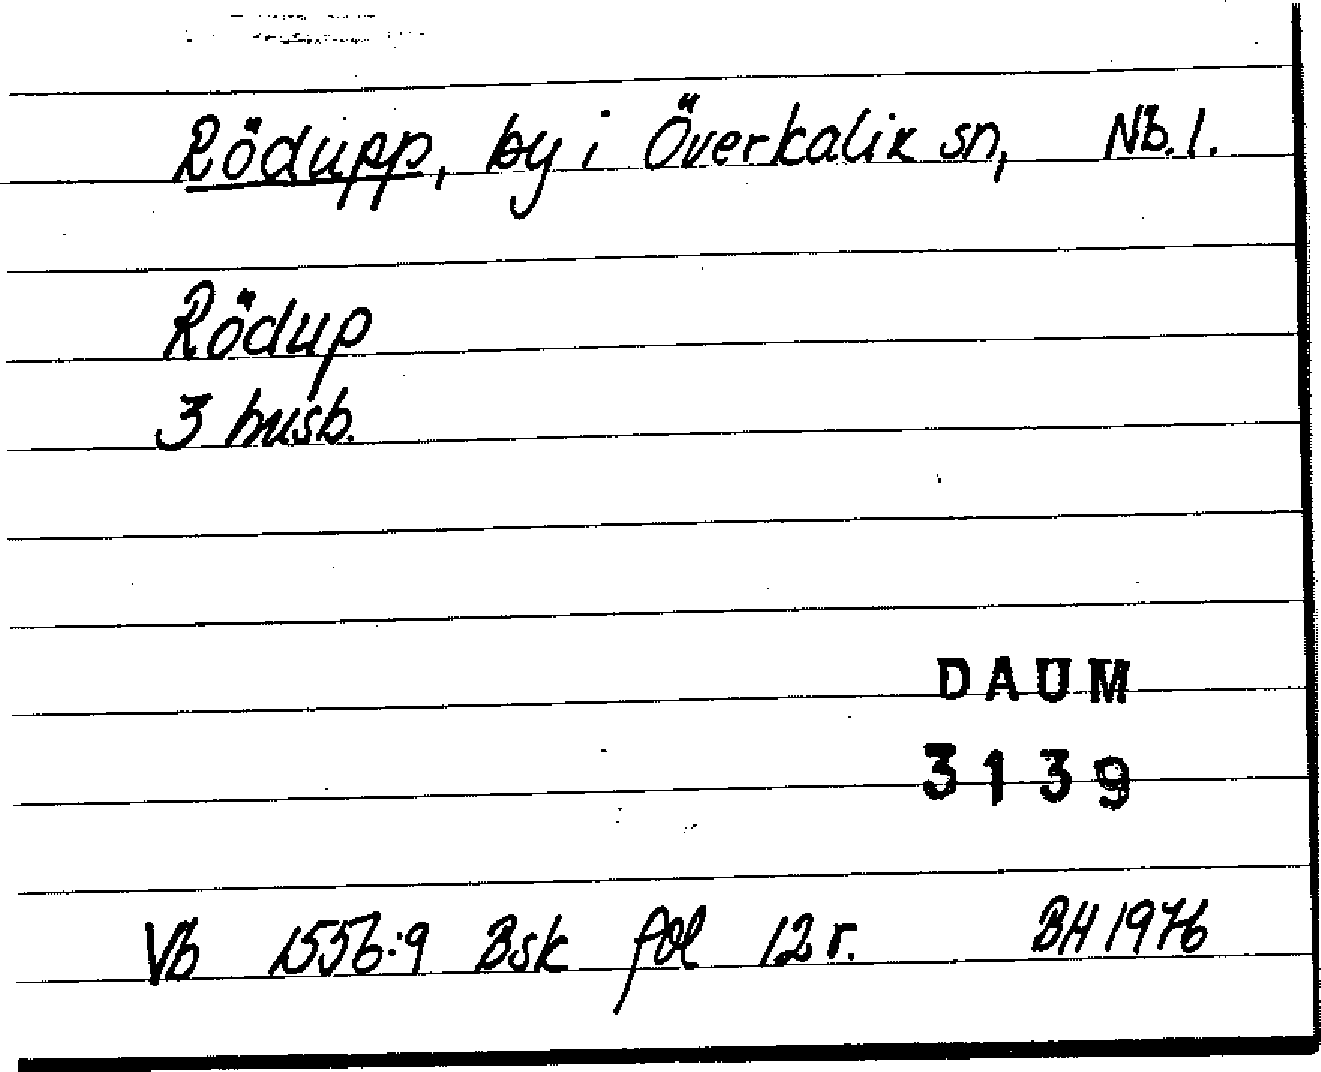 Rödupp, by i Överkalix sn, Nb. l.
Rödup
3 husb.
DAUM
3139
Vb 1556:9 Bsk fol 12 r. BH 1976